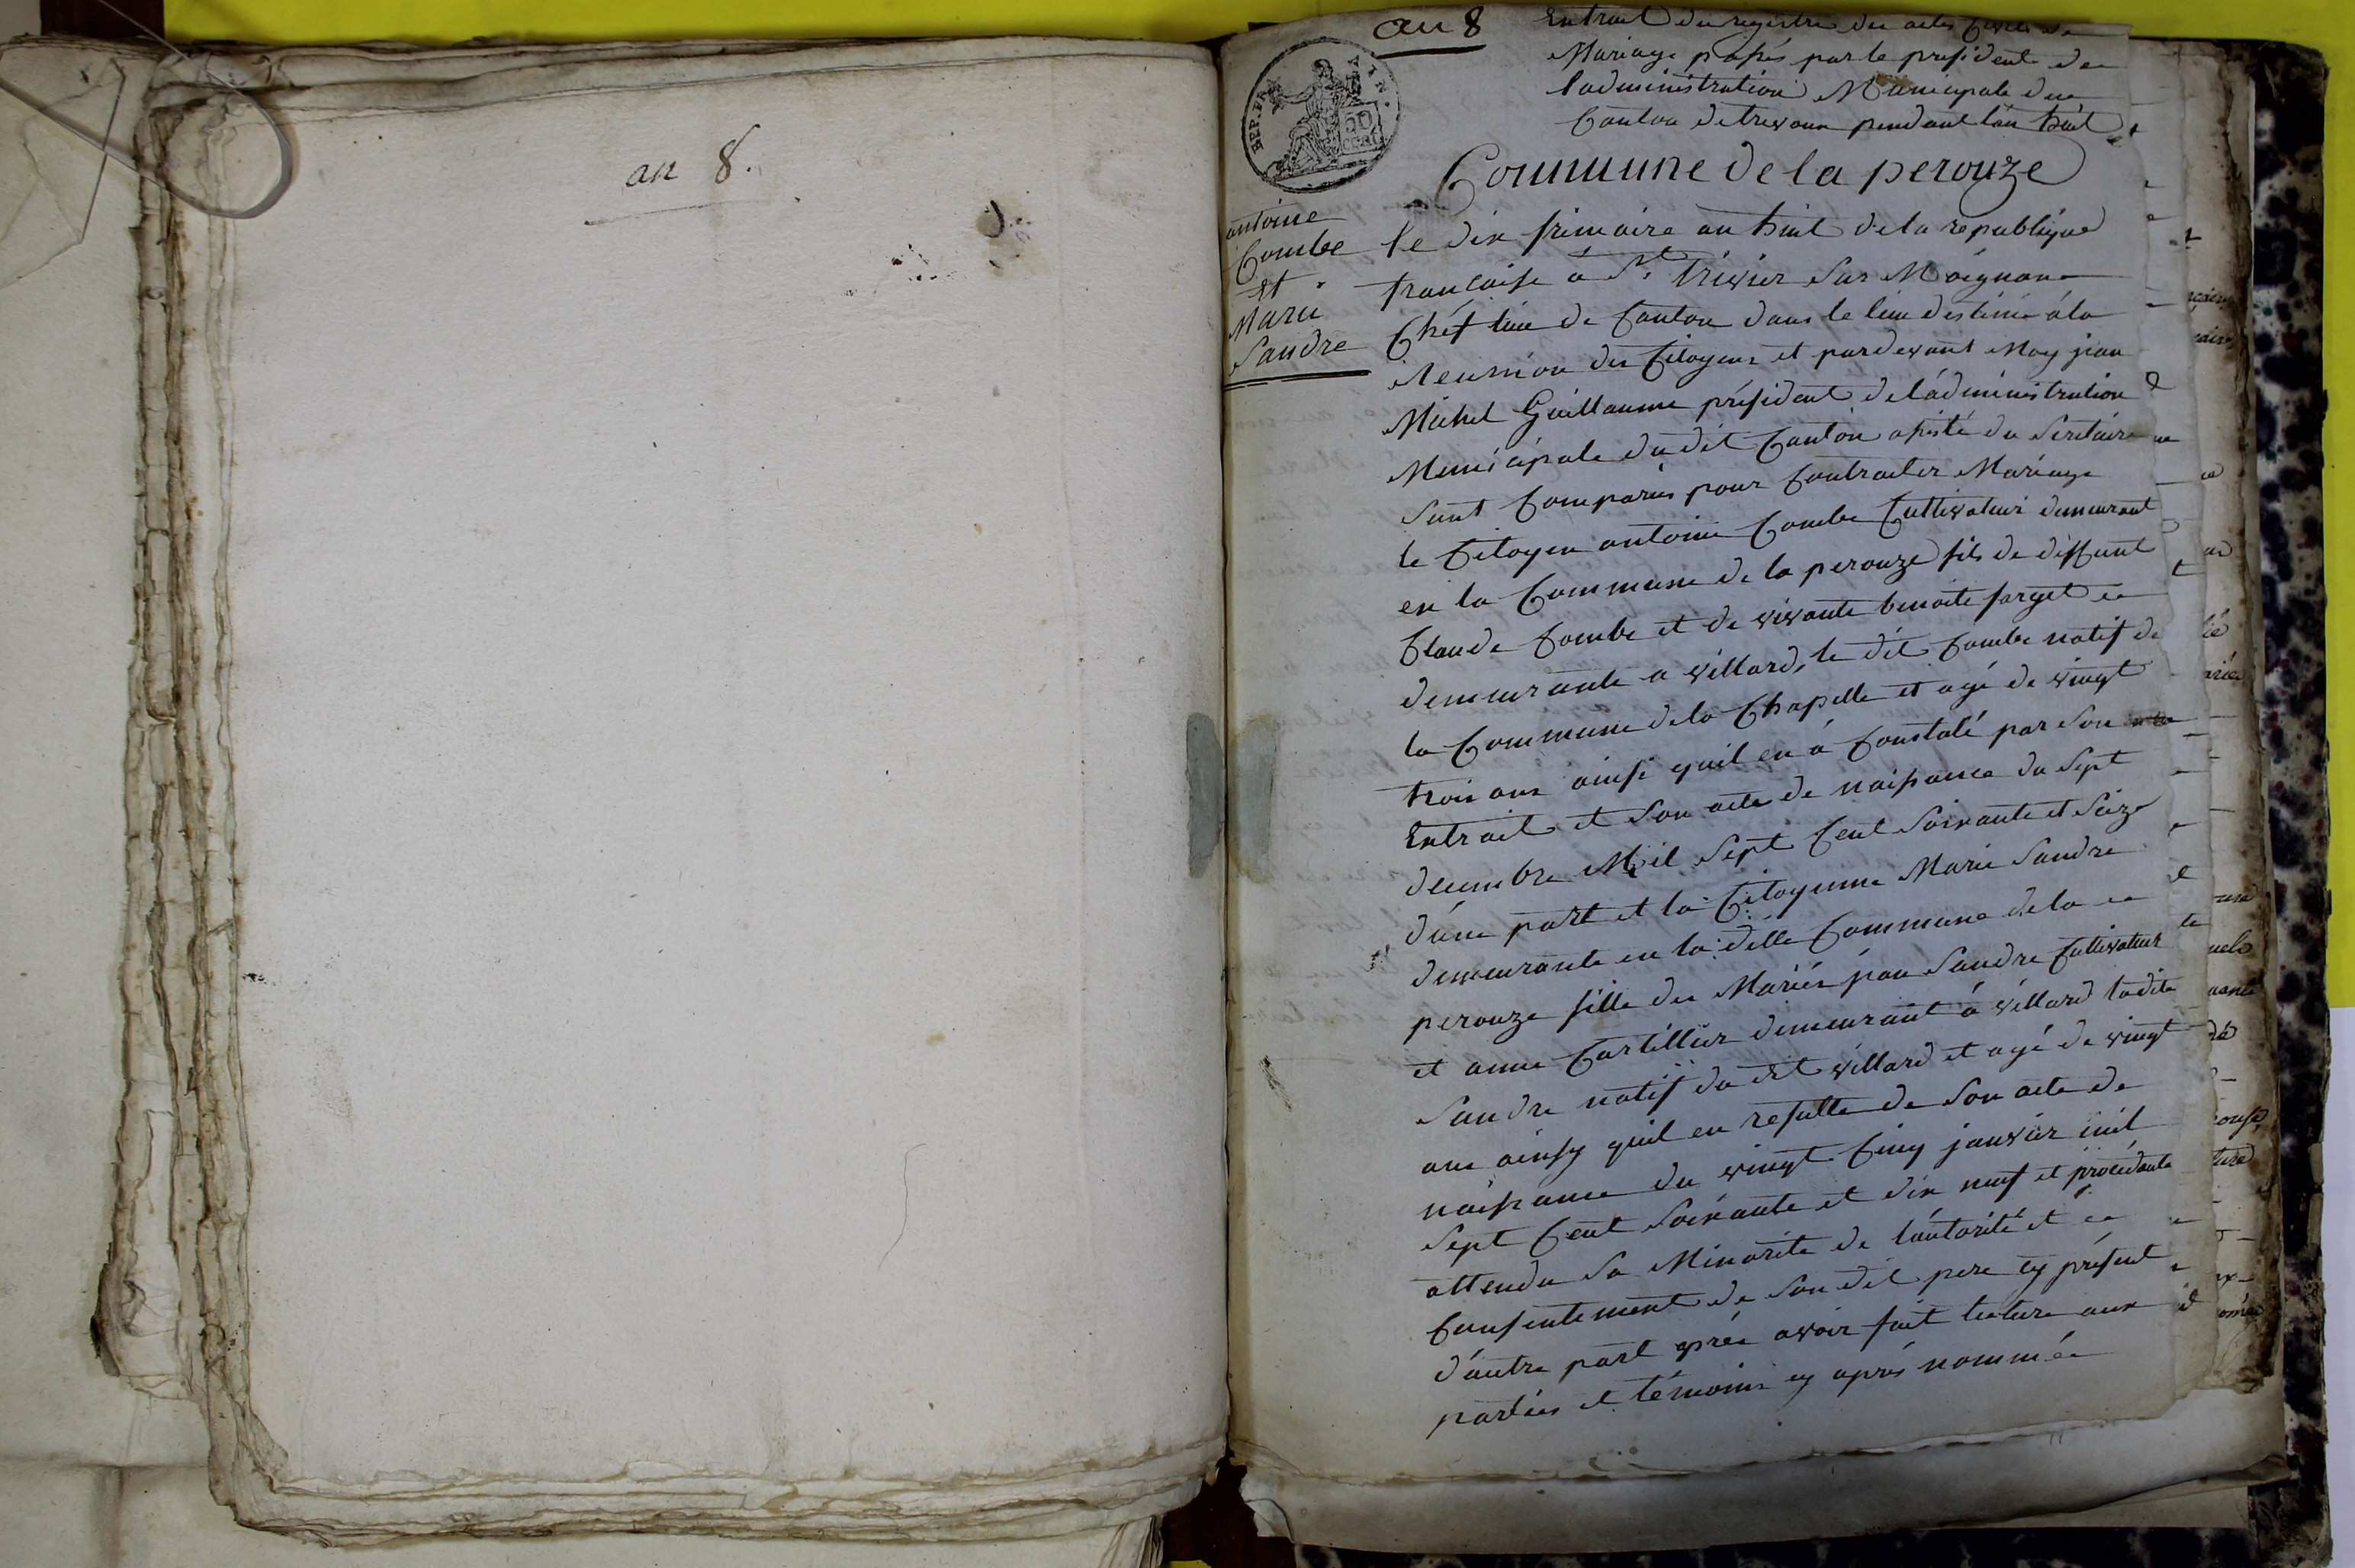 an 8.
an 8
Extrait du registre des actes Civils de
Mariage passés par le président de
l'administration Municipale du
Canton de trevoux pendant l'an huit
REP. FRA
50
CENT
Commune de la perouze
antoine
Combe
et
Marie
Sandre
le dix frimaire an huit de la republique
francaise à St. Trivier Sur Moignans
Chéf lieu de Canton dans le lieu destiné à la
Reunion des Citoyens et pardevant Moy jean
Michel Guillaume président de l'administration
Municipale du dit Canton assisté du Secrétaire
Sont Comparus pour Contracter Mariage
le Citoyen antoine Combe Cultivateur demeurant
en la Commune de la perouze fils de deffunt
Claude Combe et de vivante benoite farget
demeurante a villard, le dit Combe natif de
la Commune de la Chapelle et agé de vingt
trois ans ainsi quil en à Constaté par son
Extrait et Son acte de naissance du Sept
decembre Mil Sept Cent Soixante et Seize
d'une part et la Citoyenne Marie Sandre
demeurante en la ditte Commune de la
perouze fille des Mariés jean Sandre Cultivateur
et anne Cartillier demeurant à villard ladite
Sandre natif du dit villard et agé de vingt
ans ainsy quil en resulte de Son acte de
naissance du vingt Cinq janvier mil
Sept Cent Soixante et dix neuf et procédante
attendu Sa Minorité de l'autorité et
Consentement de Son dit pere cy présent
d'autre part après avoir fait lecture aux
parties et témoins cy après nommés